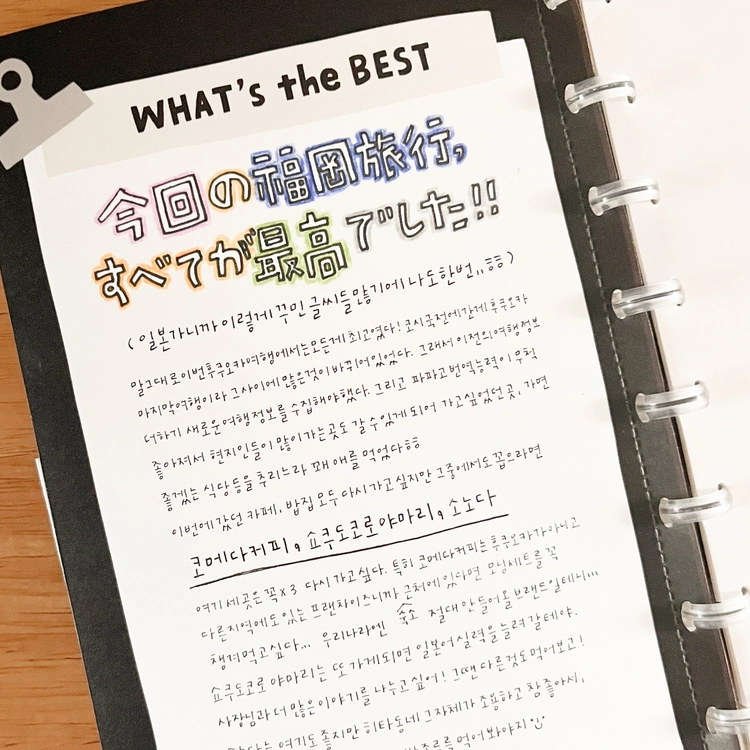 WHAT's the BEST
今回の福岡旅行,
すべてが最高でした!!
(일본가니까 이렇게 꾸민 글씨들 많기에 나도 한번,, ㅎㅎ)
말그대로 이번 후쿠오카여행에서는 모든게 최고였다! 코시국전에 간게 후쿠오카
마지막여행이라 그사이에 많은것이 바뀌어있었다. 그래서 이전의 여행정보
더하기 새로운 여행정보를 수집해야했다. 그리고 파파고 번역능력이 무척
좋아져서 현지인들이 많이가는곳도 갈 수 있게 되어 가고싶었던 곳, 가면
좋겠는 식당 등을 추리느라 꽤 애를 먹었다ㅎㅎ
이번에 갔던 카페, 밥집 모두 다시 가고싶지만 그중에서도 꼽으라면
코메다커피, 쇼쿠도코로야마리, 소노다
여기 세곳은 꼭x3 다시 가고싶다. 특히 코메다커피는 후쿠오카가 아니고
다른지역에도 있는 프랜차이즈니까 숙소 근처에 있다면 모닝세트를 꼭
챙겨먹고싶다... 우리나라엔 절대 안들어올 브랜드일테니...
쇼쿠도코로 야마리는 또 가게되면 일본어실력을 늘려 갈테야.
사장님과 더 많은이야기를 나누고 싶어! 그땐 다른것도 먹어보고!
여기도 좋지만 히타동네 그자체가 조용하고 참 좋아서,
먹어봐야지